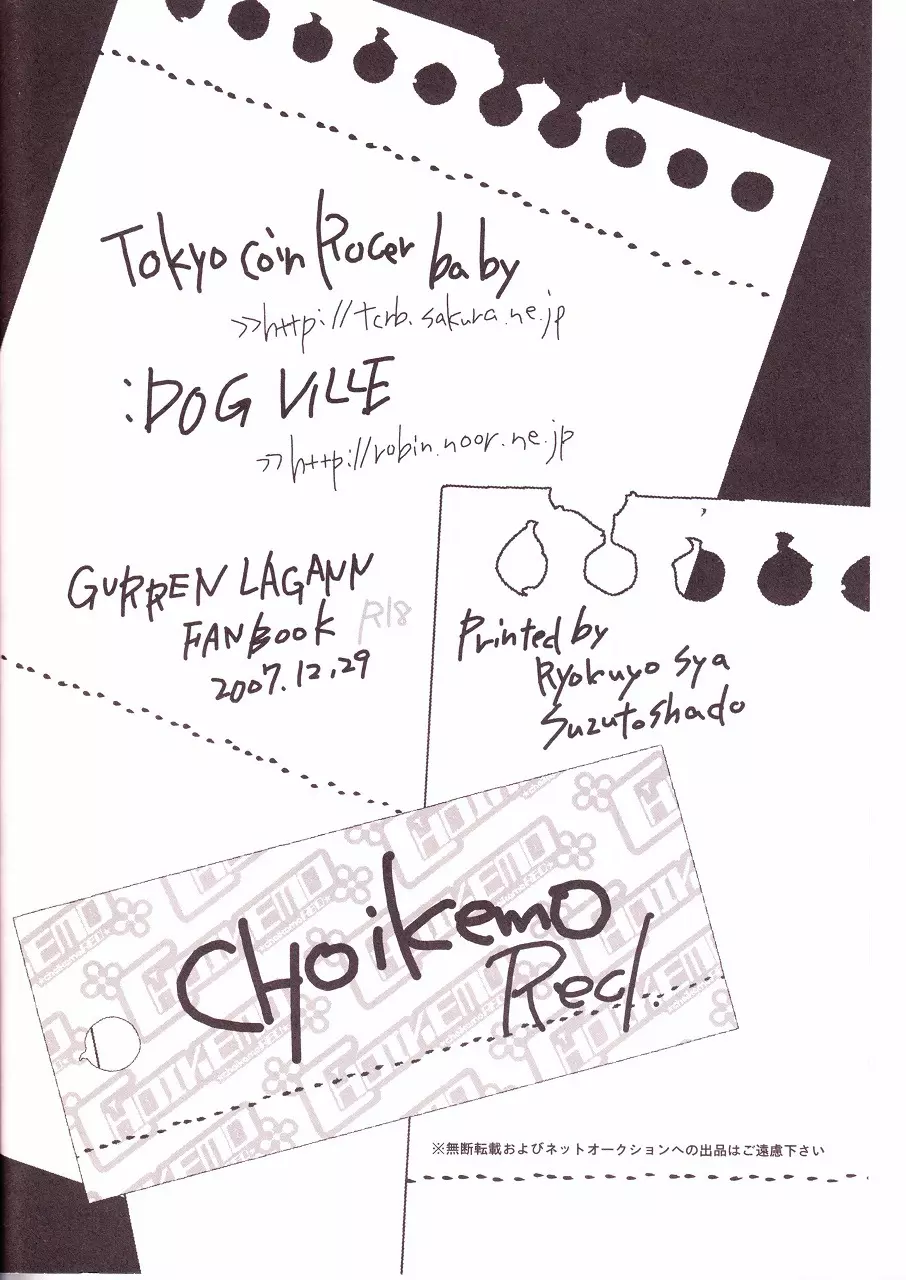 Tokyo coin Rocer baby
>>http://tcrb.sakura.ne.jp
:DOG VILLE
>>http://robin.noor.ne.jp
GURREN LAGANN
FANBOOK R18
2007.12.29
Printed by
Ryokuyo sya
Suzutoshado
CHoikemo
Red.
※無断転載およびネットオークションへの出品はご遠慮下さい